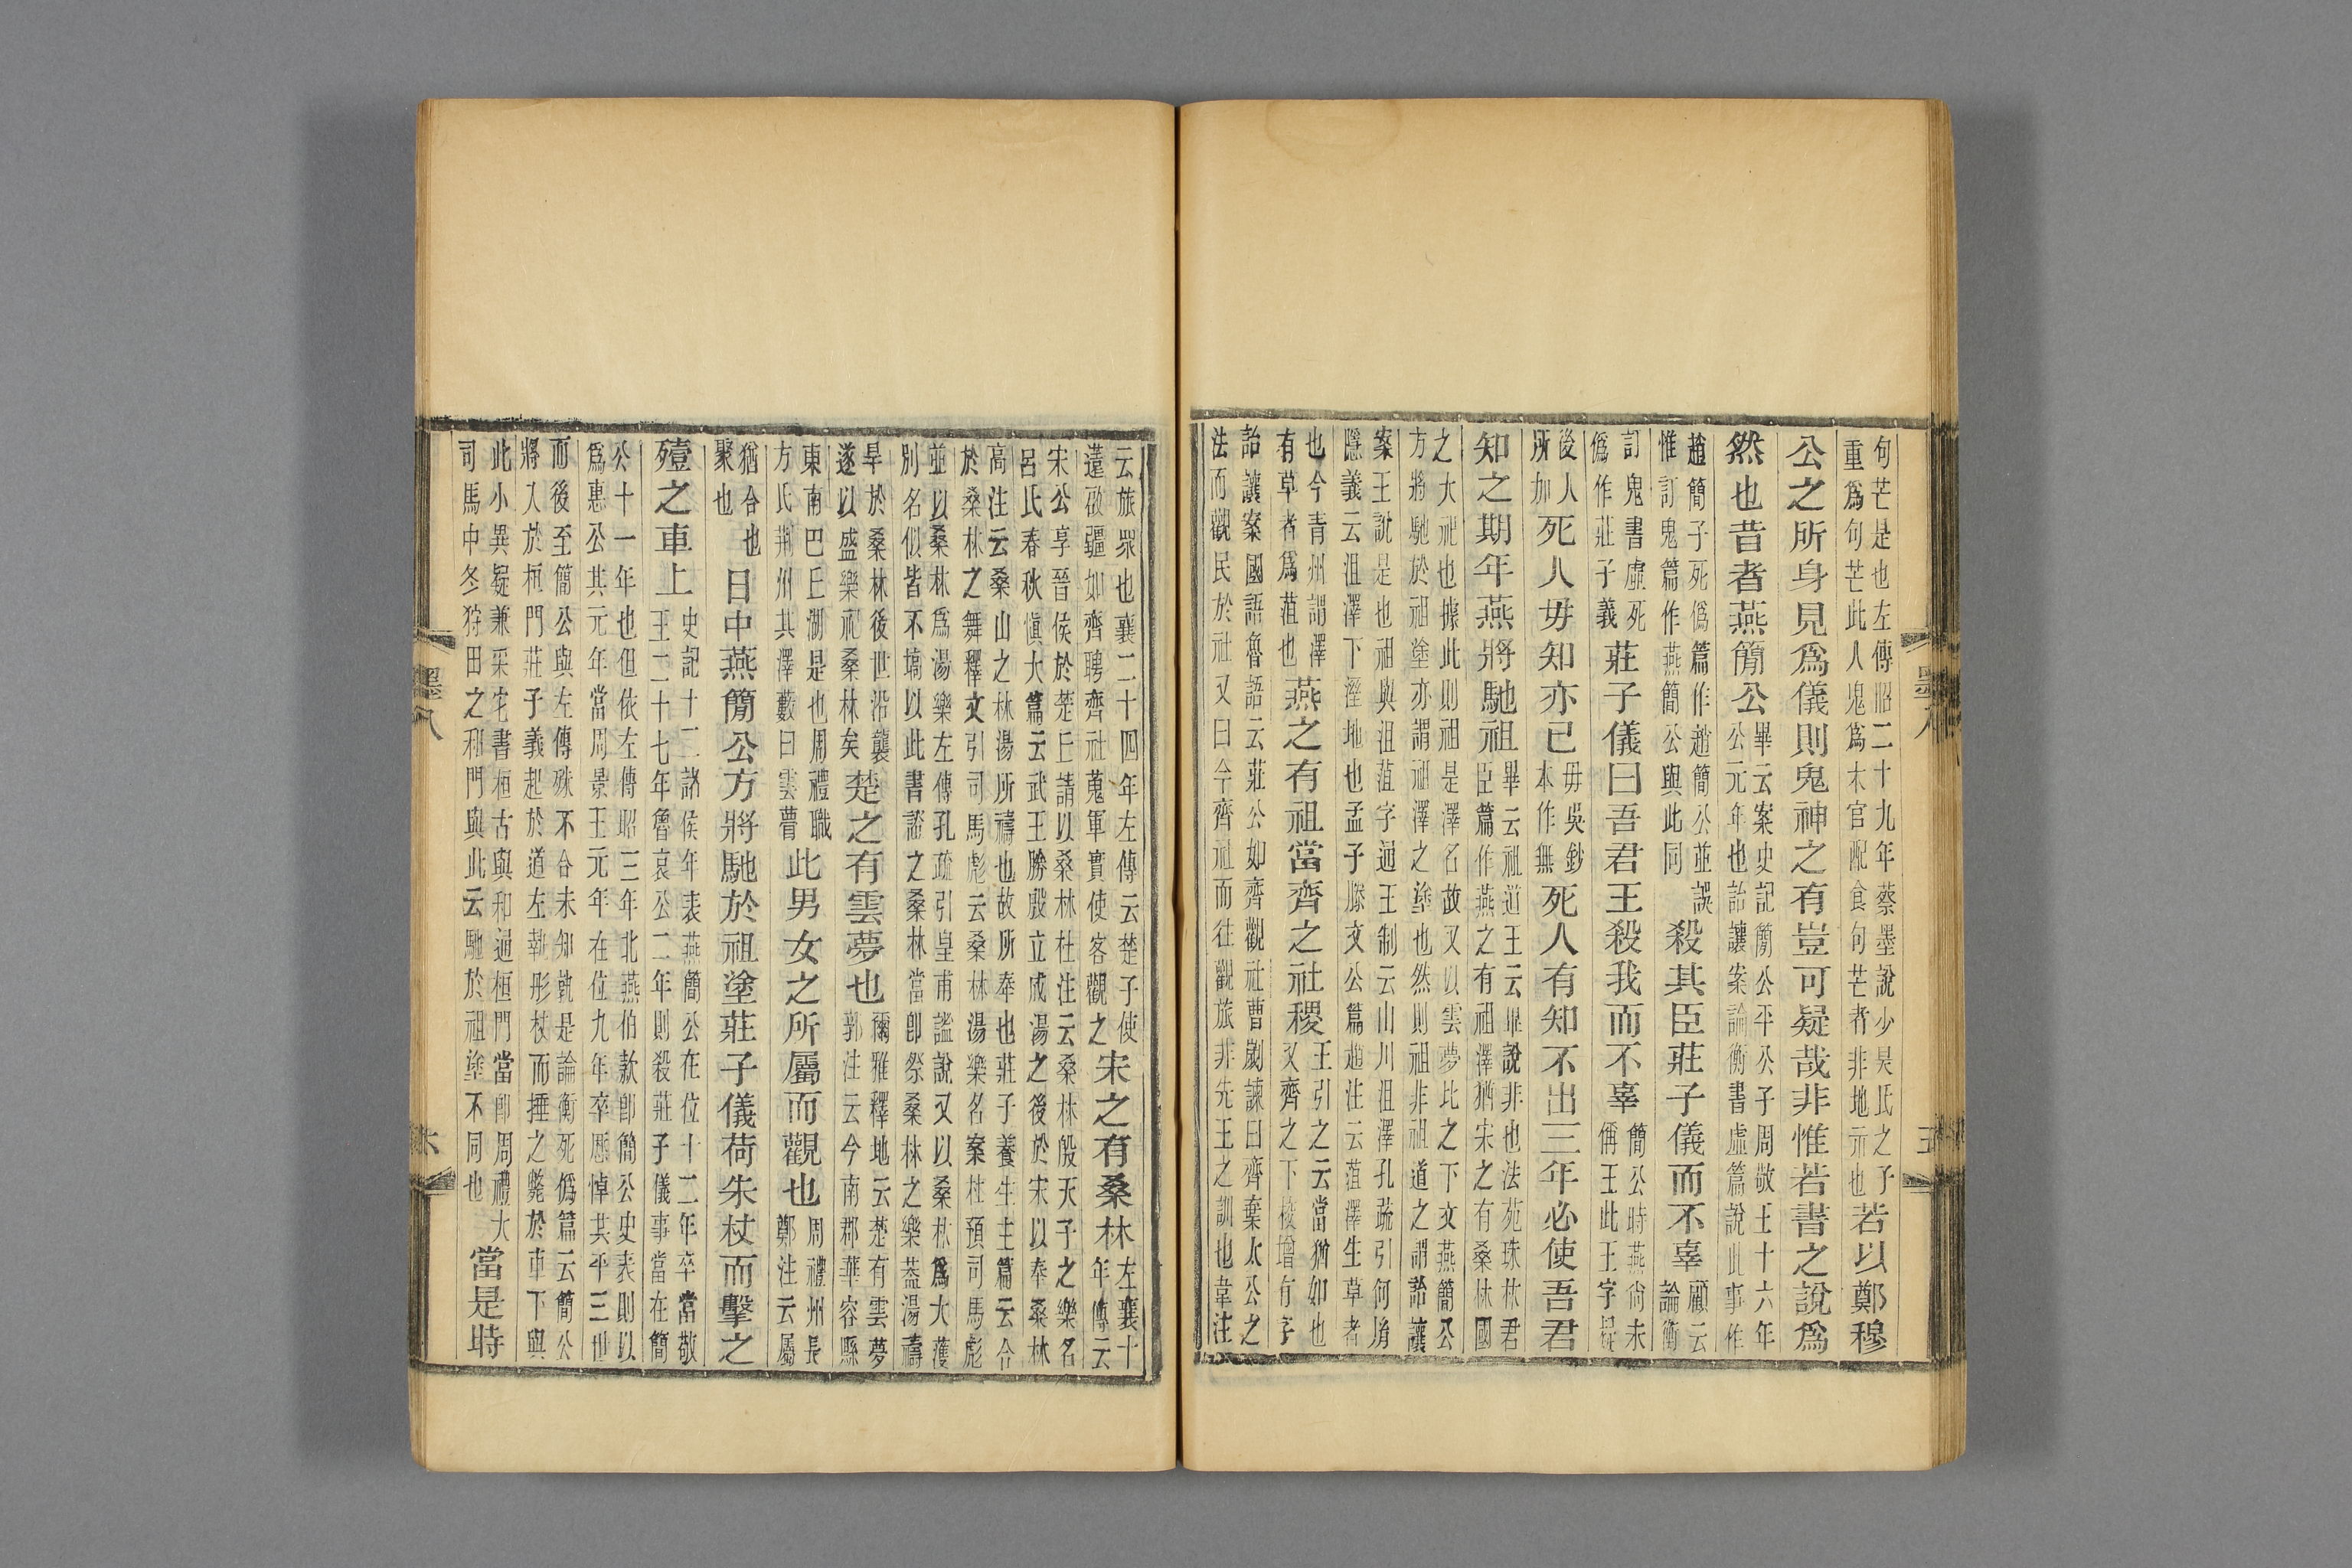 句芒是也左傳昭二十九年蔡墨說少昊氏之子重爲句芒此人鬼爲木官配食句芒者非地示也若以鄭穆
公之所身見爲儀則鬼神之有豈可疑哉非惟若書之說爲
然也昔者燕簡公畢云案史記簡公平公子周敬王十六年公元年也詒讓案論衡書虛篇說此事作
趙簡子死僞篇作趙簡公並誤惟訂鬼篇作燕簡公與此同殺其臣莊子儀而不辜顧云論衡
訂鬼書虛死僞作莊子義莊子儀曰吾君王殺我而不辜簡公時燕尚未偁王此王字疑
後人所加死人毋知亦已毋吳鈔本作無死人有知不出三年必使吾君
知之期年燕將馳祖畢云祖道王云畢說非也法苑珠林君臣篇作燕之有祖澤猶宋之有桑林國
之大祀也據此則祖是澤名故又以雲夢比之下文燕簡公方將馳於祖塗亦謂祖澤之塗也然則祖非祖道之謂詒讓
案王說是也祖與沮菹字通王制云山川沮澤孔疏引何胤隱義云沮澤下溼地也孟子滕文公篇趙注云菹澤生草者
也今青州謂澤有草者爲菹也燕之有祖當齊之社稷王引之云當猶如也又齊之下校增有字
詒讓案國語魯語云莊公如齊觀社曹劌諫曰齊棄太公之法而觀民於社又曰今齊社而往觀旅非先王之訓也韋注
墨八 五
云旅眾也襄二十四年左傳云楚子使薳啟疆如齊聘齊社蒐軍實使客觀之宋之有桑林左襄十年傳云
宋公享晉侯於楚丘請以桑林杜注云桑林殷天子之樂名呂氏春秋慎大篇云武王勝殷立成湯之後於宋以奉桑林
高注云桑山之林湯所禱也故所奉也莊子養生主篇云合於桑林之舞釋文引司馬彪云桑林湯樂名案杜預司馬彪
並以桑林爲湯樂左傳孔疏引皇甫謐說又以桑林爲大濩別名似皆不塙以此書證之桑林當卽祭桑林之樂蓋湯禱
旱於桑林後世沿襲遂以盛樂祀桑林矣楚之有雲夢也爾雅釋地云楚有雲夢郭注云今南郡華容縣
東南巴丘湖是也周禮職方氏荆州其澤藪曰雲瞢此男女之所屬而觀也周禮州長鄭注云屬
猶合也聚也日中燕簡公方將馳於祖塗莊子儀荷朱杖而擊之
殪之車上史記十二諸侯年表燕簡公在位十二年卒當敬王二十七年魯哀公二年則殺莊子儀事當在簡
公十一年也但依左傳昭三年北燕伯款卽簡公史表則以爲惠公其元年當周景王元年在位九年卒歷悼共平三世
而後至簡公與左傳殊不合未知孰是論衡死僞篇云簡公將入於桓門莊子義起於道左執彤杖而捶之斃於車下與
此小異疑兼采它書桓古與和通桓門當卽周禮大司馬中冬狩田之和門與此云馳於祖塗不同也當是時
墨八 六